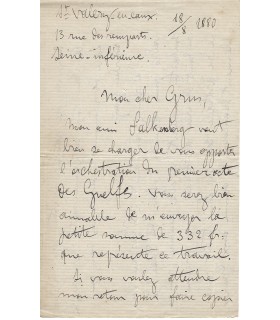 St Valery-en-caux. 18/8 1880
13 rue des remparts.
Seine-inférieure.
Mon cher Grus,
Mon ami Falkenberg veut
bien se charger de vous apporter
l'orchestration du premier acte
des Guelfes. Vous serez bien
aimable de m'envoyer la
petite somme de 332 fr.
que représente ce travail.
Si vous voulez attendre
mon retour pour faire copier